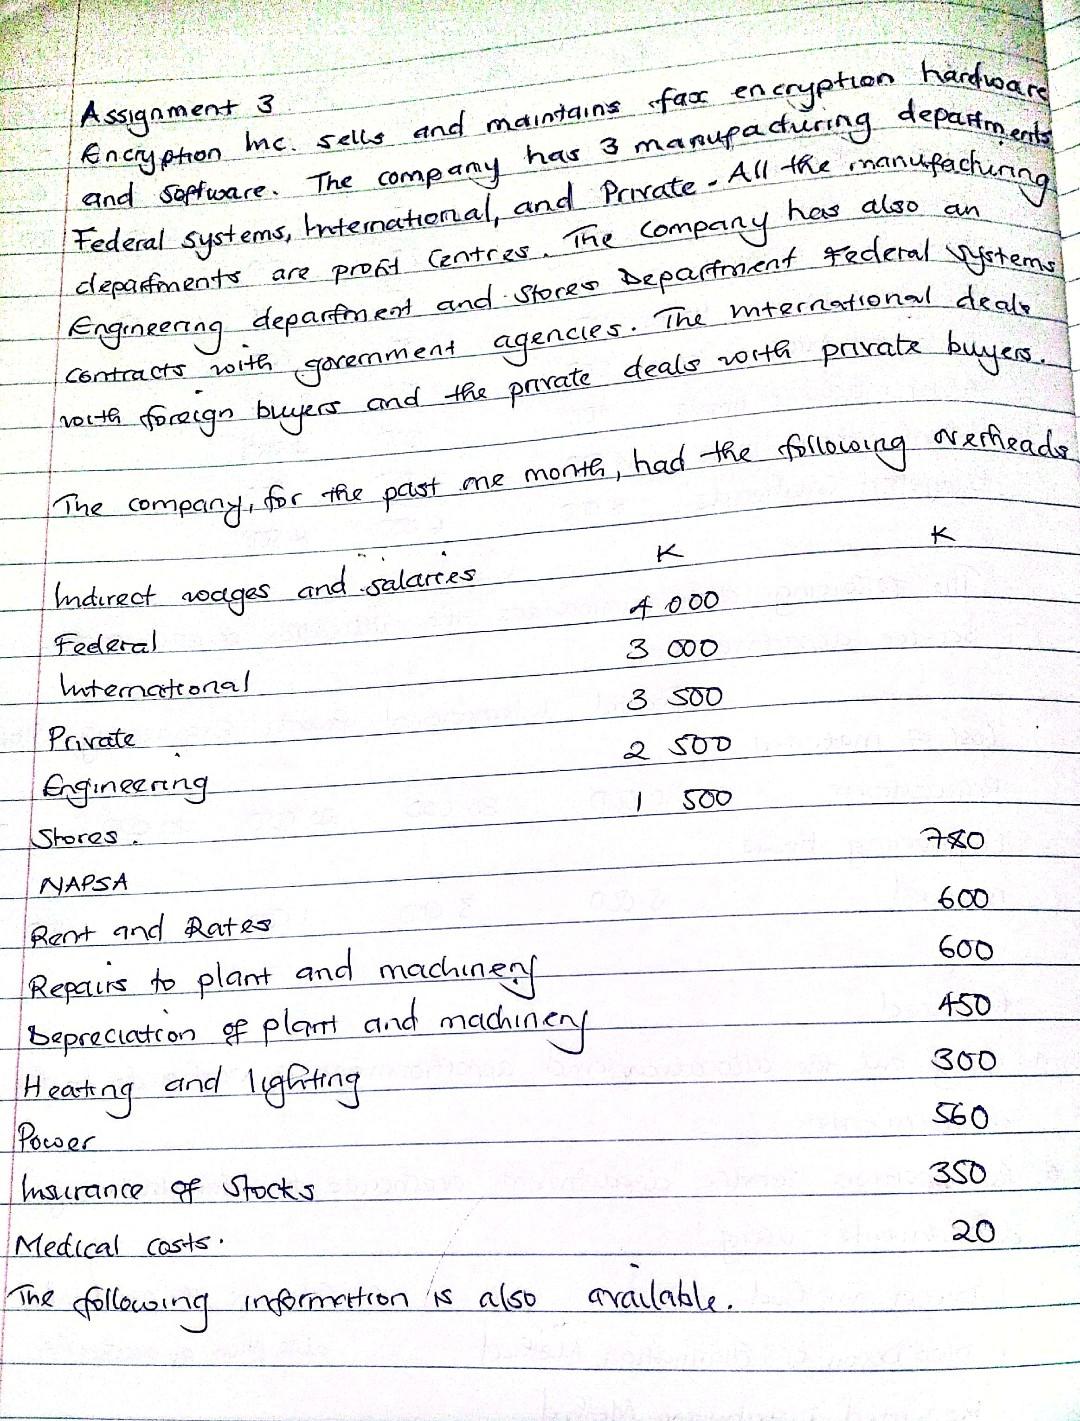 Assignment 3
Encryption Inc. sells and maintains fax encryption hardware
and software. The company has 3 manufacturing departments
Federal systems, International, and Private. All the manufacturing
departments are profit centres. The company has also an
Engineering department and Stores Department Federal systems
contracts with government agencies. The international deals
with foreign buyers and the private deals with private buyers.
The company, for the past one month, had the following overheads
K K
Indirect wages and salaries
Federal 4 000
International 3 000
Private 3 500
Engineering 2 500
Stores. 1 500
NAPSA 780
Rent and Rates 600
Repairs to plant and machinery 600
Depreciation of plant and machinery 450
Heating and lighting 300
Power 560
Insurance of Stocks 350
Medical costs. 20
The following information is also available.